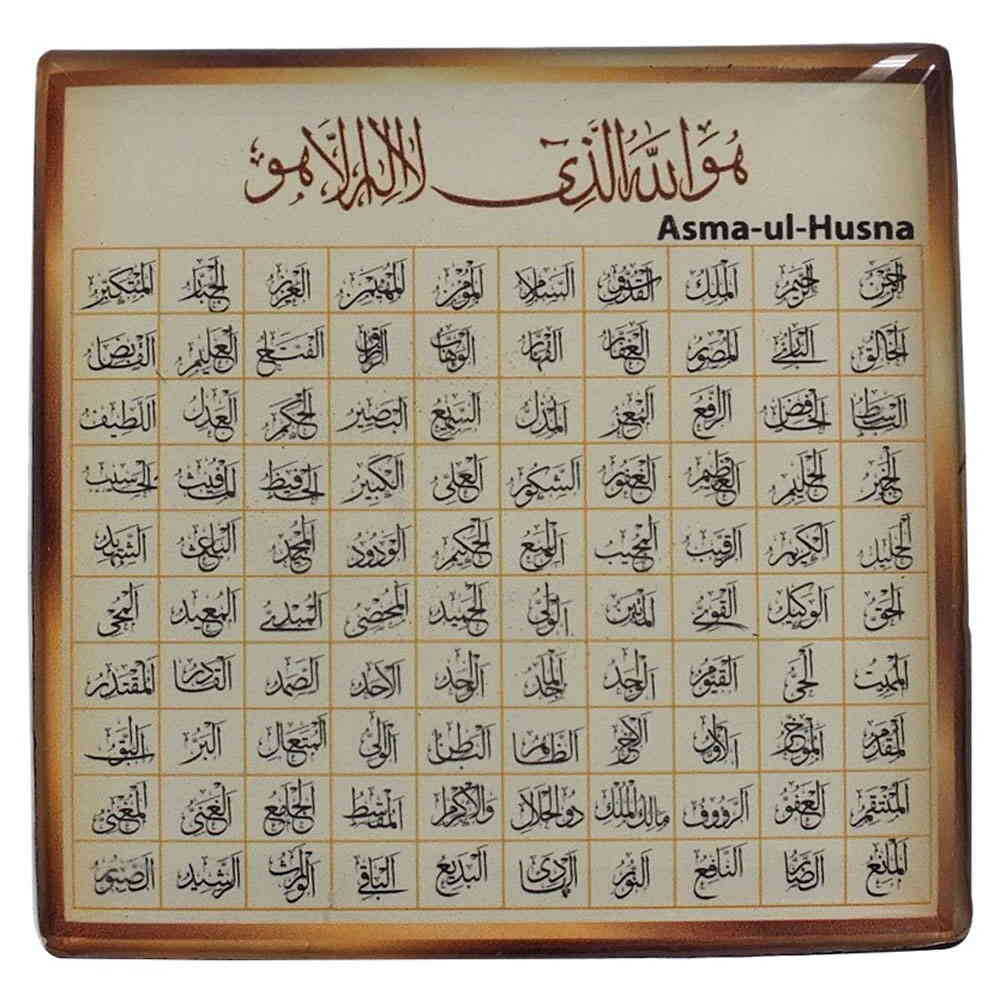 هُوَ اللَّهُ الَّذِي لَا إِلٰهَ إِلَّا هُوَ
Asma-ul-Husna
الرحمن الرحيم الملك القدوس السلام المؤمن المهيمن العزيز الجبار المتكبر
الخالق البارئ المصور الغفار القهار الوهاب الرزاق الفتاح العليم القابض
الباسط الخافض الرافع المعز المذل السميع البصير الحكم العدل اللطيف
الخبير الحليم العظيم الغفور الشكور العلي الكبير الحفيظ المقيت الحسيب
الجليل الكريم الرقيب المجيب الواسع الحكيم الودود المجيد الباعث الشهيد
الحق الوكيل القوي المتين الولي الحميد المحصي المبدئ المعيد المحيي
المميت الحي القيوم الواجد الماجد الواحد الاحد الصمد القادر المقتدر
المقدم المؤخر الاول الآخر الظاهر الباطن الوالي المتعال البر التواب
المنتقم العفو الرؤوف مالك الملك ذو الجلال والاكرام المقسط الجامع الغني المغني
المانع الضار النافع النور الهادي البديع الباقي الوارث الرشيد الصبور